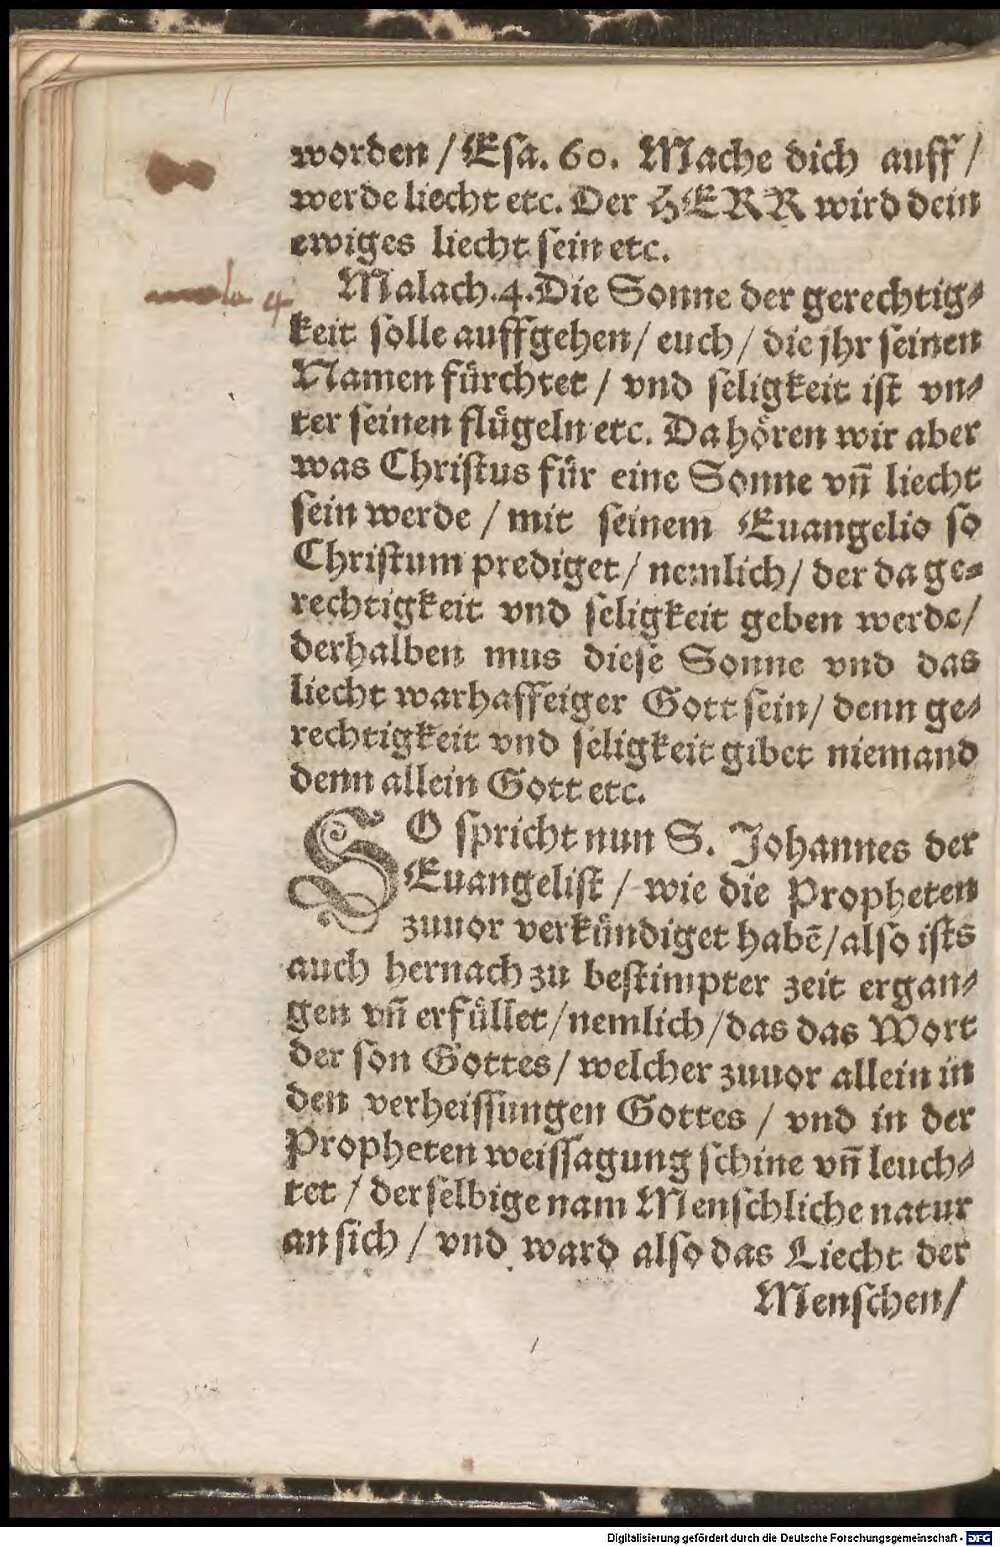 worden / Esa. 60. Mache dich auff /
werde liecht etc. Der HERR wird dein
ewiges liecht sein etc.
Malach. 4. Die Sonne der gerechtig⸗
keit solle auffgehen / euch / die jhr seinen
Namen fürchtet / vnd seligkeit ist vn⸗
ter seinen flügeln etc. Da hören wir aber
was Christus für eine Sonne vn̄ liecht
sein werde / mit seinem Euangelio so
Christum prediget / nemlich / der da ge⸗
rechtigkeit vnd seligkeit geben werde /
derhalben mus diese Sonne vnd das
liecht warhaffeiger Gott sein / denn ge⸗
rechtigkeit vnd seligkeit gibet niemand
denn allein Gott etc.
SO spricht nun S. Johannes der
Euangelist / wie die Propheten
zuuor verkündiget habē / also ists
auch hernach zu bestimpter zeit ergan⸗
gen vn̄ erfüllet / nemlich / das das Wort
der son Gottes / welcher zuuor allein in
den verheissungen Gottes / vnd in der
Propheten weissagung schine vn̄ leuch⸗
tet / der selbige nam Menschliche natur
an sich / vnd ward also das Liecht der
Menschen /
Digitalisierung gefördert durch die Deutsche Forschungsgemeinschaft - DFG